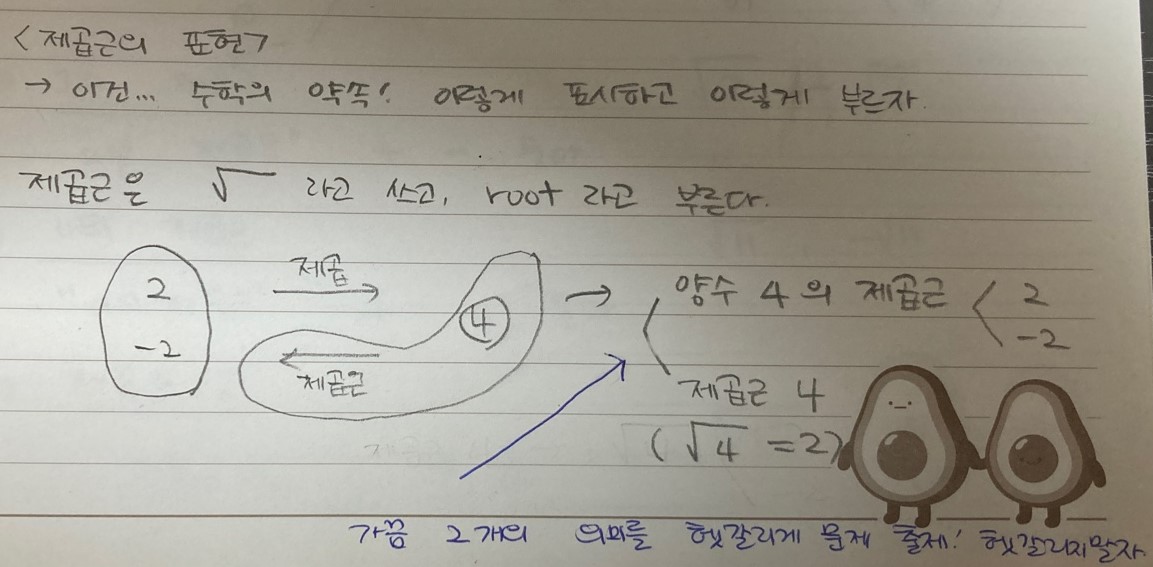 <제곱근의 표현>
→ 이건... 수학의 약속! 이렇게 표시하고 이렇게 부르자.
제곱근은 √ 라고 쓰고, root 라고 부른다.
2
-2
제곱
→
4
←
제곱근
→ 양수 4의 제곱근 < 2
-2
제곱근 4
(√4 = 2)
가끔 2개의 의미를 헷갈리게 문제 출제! 헷갈리지말자